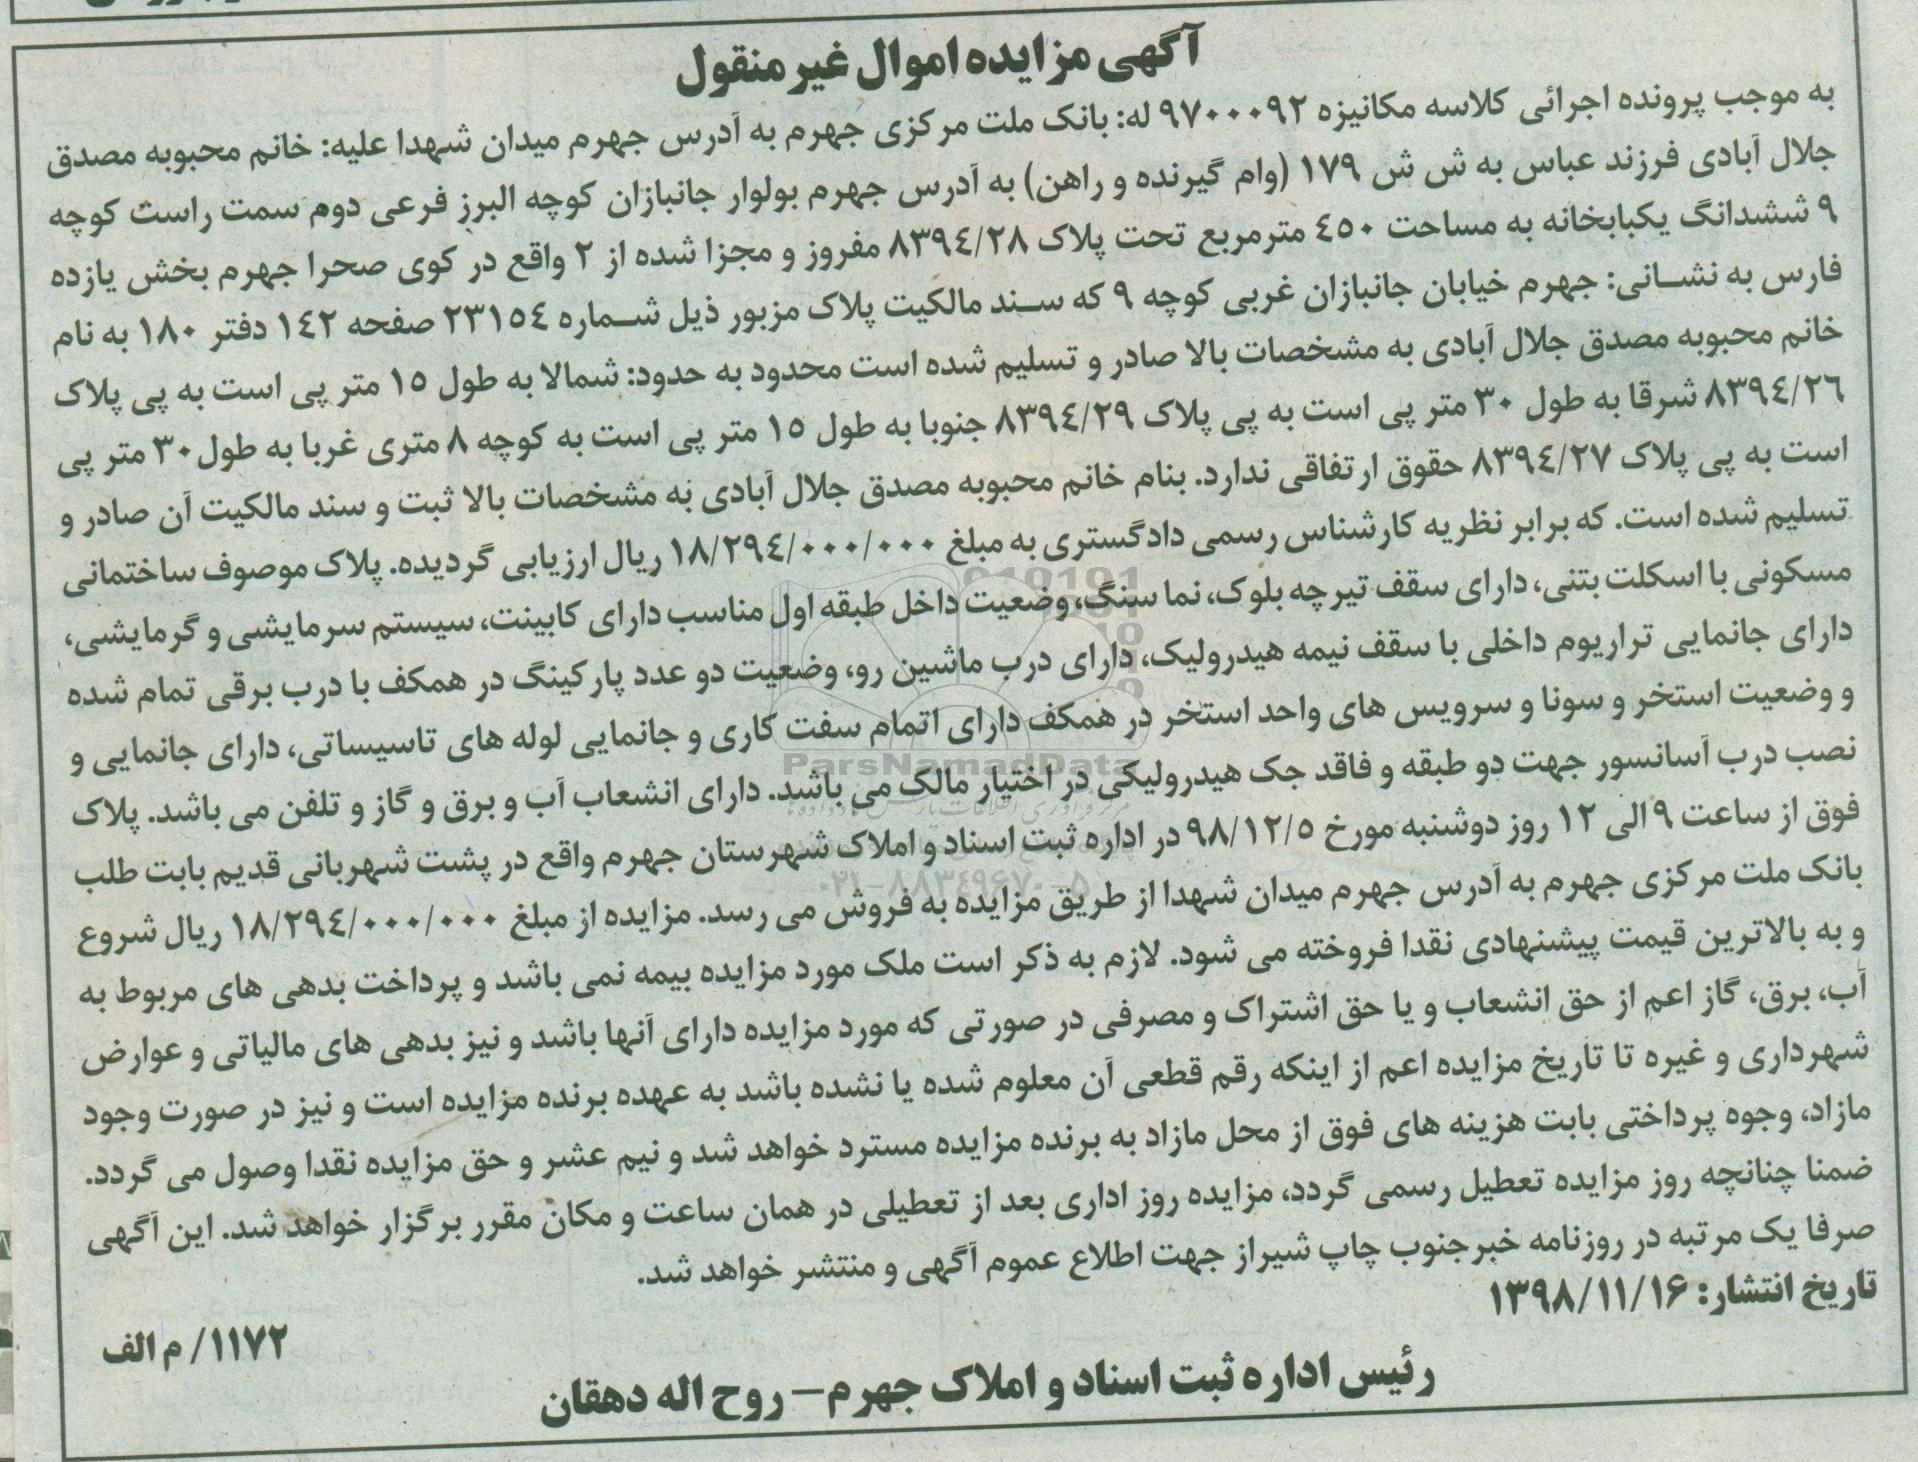 آگهی مزایده اموال غیر منقول
به موجب پرونده اجرائی کلاسه مکانیزه ۹۷۰۰۰۹۲ له: بانک ملت مرکزی جهرم به آدرس جهرم میدان شهدا علیه: خانم محبوبه مصدق
جلال آبادی فرزند عباس به ش ش ۱۷۹ (وام گیرنده و راهن) به آدرس جهرم بولوار جانبازان کوچه البرز فرعی دوم سمت راست کوچه
۹ ششدانگ یکبابخانه به مساحت ۴۵۰ مترمربع تحت پلاک ۸۳۹۴/۲۸ مفروز و مجزا شده از ۲ واقع در کوی صحرا جهرم بخش یازده
فارس به نشانی: جهرم خیابان جانبازان غربی کوچه ۹ که سند مالکیت پلاک مزبور ذیل شماره ۲۳۱۵۴ صفحه ۱۴۲ دفتر ۱۸۰ به نام
خانم محبوبه مصدق جلال آبادی به مشخصات بالا صادر و تسلیم شده است محدود به حدود: شمالا به طول ۱۵ متر پی است به پی پلاک
۸۳۹۴/۲۶ شرقا به طول ۳۰ متر پی است به پی پلاک ۸۳۹۴/۲۹ جنوبا به طول ۱۵ متر پی است به کوچه ۸ متری غربا به طول۳۰ متر پی
است به پی پلاک ۸۳۹۴/۲۷ حقوق ارتفاقی ندارد. بنام خانم محبوبه مصدق جلال آبادی به مشخصات بالا ثبت و سند مالکیت آن صادر و
تسلیم شده است. که برابر نظریه کارشناس رسمی دادگستری به مبلغ ۱۸/۲۹۴/۰۰۰/۰۰۰ ریال ارزیابی گردیده. پلاک موصوف ساختمانی
مسکونی با اسکلت بتنی، دارای سقف تیرچه بلوک، نما سنگ، وضعیت داخل طبقه اول مناسب دارای کابینت، سیستم سرمایشی و گرمایشی،
دارای جانمایی تراریوم داخلی با سقف نیمه هیدرولیک، دارای درب ماشین رو، وضعیت دو عدد پارکینگ در همکف با درب برقی تمام شده
و وضعیت استخر و سونا و سرویس های واحد استخر در همکف دارای اتمام سفت کاری و جانمایی لوله های تاسیساتی، دارای جانمایی و
نصب درب آسانسور جهت دو طبقه و فاقد جک هیدرولیکی در اختیار مالک می باشد. دارای انشعاب آب و برق و گاز و تلفن می باشد. پلاک
فوق از ساعت ۹ الی ۱۲ روز دوشنبه مورخ ۹۸/۱۲/۵ در اداره ثبت اسناد و املاک شهرستان جهرم واقع در پشت شهربانی قدیم بابت طلب
بانک ملت مرکزی جهرم به آدرس جهرم میدان شهدا از طریق مزایده به فروش می رسد. مزایده از مبلغ ۱۸/۲۹۴/۰۰۰/۰۰۰ ریال شروع
و به بالاترین قیمت پیشنهادی نقدا فروخته می شود. لازم به ذکر است ملک مورد مزایده بیمه نمی باشد و پرداخت بدهی های مربوط به
آب، برق، گاز اعم از حق انشعاب و یا حق اشتراک و مصرفی در صورتی که مورد مزایده دارای آنها باشد و نیز بدهی های مالیاتی و عوارض
شهرداری و غیره تا تاریخ مزایده اعم از اینکه رقم قطعی آن معلوم شده یا نشده باشد به عهده برنده مزایده است و نیز در صورت وجود
مازاد، وجوه پرداختی بابت هزینه های فوق از محل مازاد به برنده مزایده مسترد خواهد شد و نیم عشر و حق مزایده نقدا وصول می گردد.
ضمنا چنانچه روز مزایده تعطیل رسمی گردد، مزایده روز اداری بعد از تعطیلی در همان ساعت و مکان مقرر برگزار خواهد شد. این آگهی
صرفا یک مرتبه در روزنامه خبرجنوب چاپ شیراز جهت اطلاع عموم آگهی و منتشر خواهد شد.
تاریخ انتشار: ۱۳۹۸/۱۱/۱۶
۱۱۷۲/ م الف
رئیس اداره ثبت اسناد و املاک جهرم – روح اله دهقان
ParsNamadData
۰۲۱-۸۸۳۴۹۶۷۰-۵